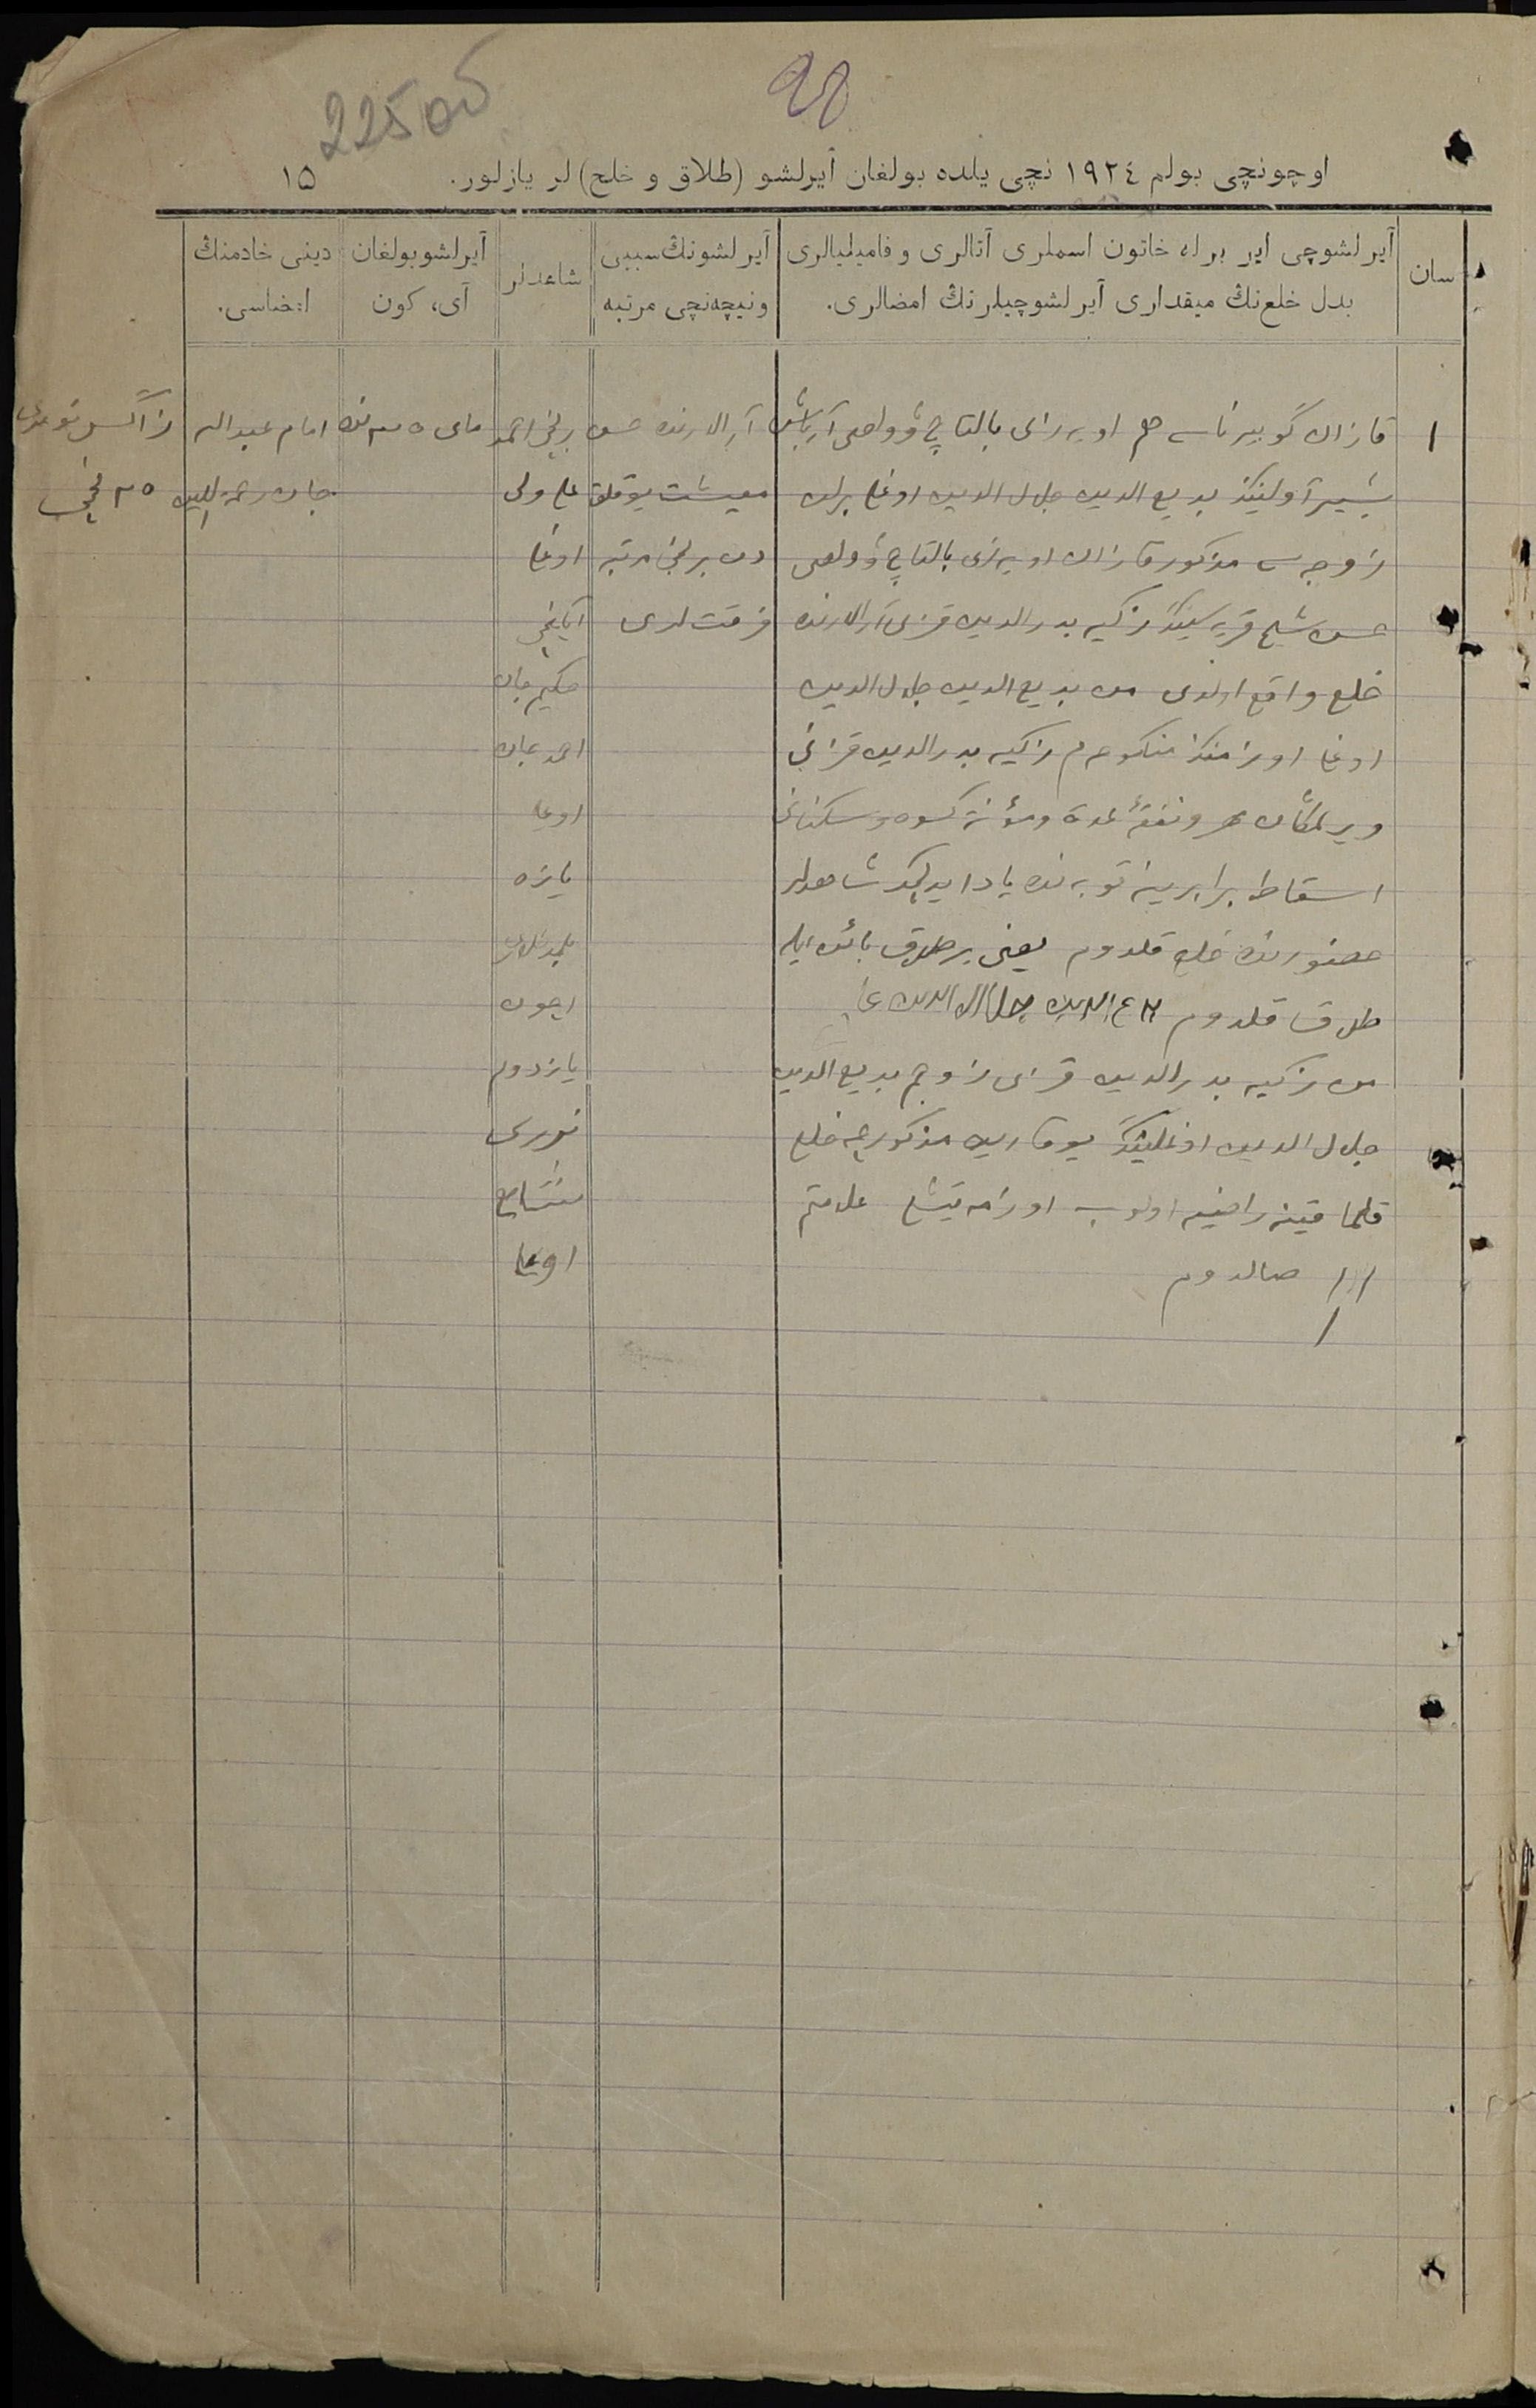 225 об
اوچونچی بولم ١٩٢٤ نچی یلده بولغان آیرلشو (طلاق و خلح) لر یازلور. ١٥
سان
آیرلشوچی ایر برله خاتون اسملری آتالری و فامیلیالری
بدل خلع‌نڭ میقداری آیرلشوچیلرنڭ امضالری.
آیرلشونڭ سببی
ونیچه‌نچی مرتبه
شاهدلر
آیرلشو بولغان
آی، کون
دینی خادمنڭ
امضاسی.
١
قازان گوبیرناسی هم اویه‌زای بالتاچ وولصی آرباش
بشیر آولینڭ بدیع الدین جلال الدین اوغلی برلن
زوجه سی مذکور قازان اویه‌زی بالتاچ وولصی
حسن شیخ قریه سینڭ زکیه بدرالدین قزی آرالارنده
خلع واقع اولدی من بدیع الدین جلال الدین
اوغلی اوزمنڭ منکوحه م زکیه بدرالدین قزانی
ویرلمگان مهر و نفقۀ عدة ومؤنة کسوه وسکنانی
اسقاط برابرینه توبه‌نده یاد ایدلمڭ شاهدلر
حضورنده خلع قلدوم یعنی بر طلاق بائن ایله
طلاق قلدوم بديع الدين جلال الدين
من زکیه بدرالدین قزی زوجم بدیع الدین
جلال الدین اوغلینڭ یوقاریده مذکورچه خلع
قلماقینه راضیه اولوب اوزمه تیشلی علامتم
/// صالدوم
آرالارنده حسن
معیشت یوقلق
دن برنچی مرتبه
فرقت لری
برنچی احمد
علی ولی
اوغلی
ایکنچی
حکیم جان
احمد جان
اوغلی
یازه
بلمه‌گان
اچون
یازدوم
نوری
منشایح
اوغلی
مای ٢٥ نده
امام عبدالله
جان رحمة الله
زاگس نومری
٢٥ نچی